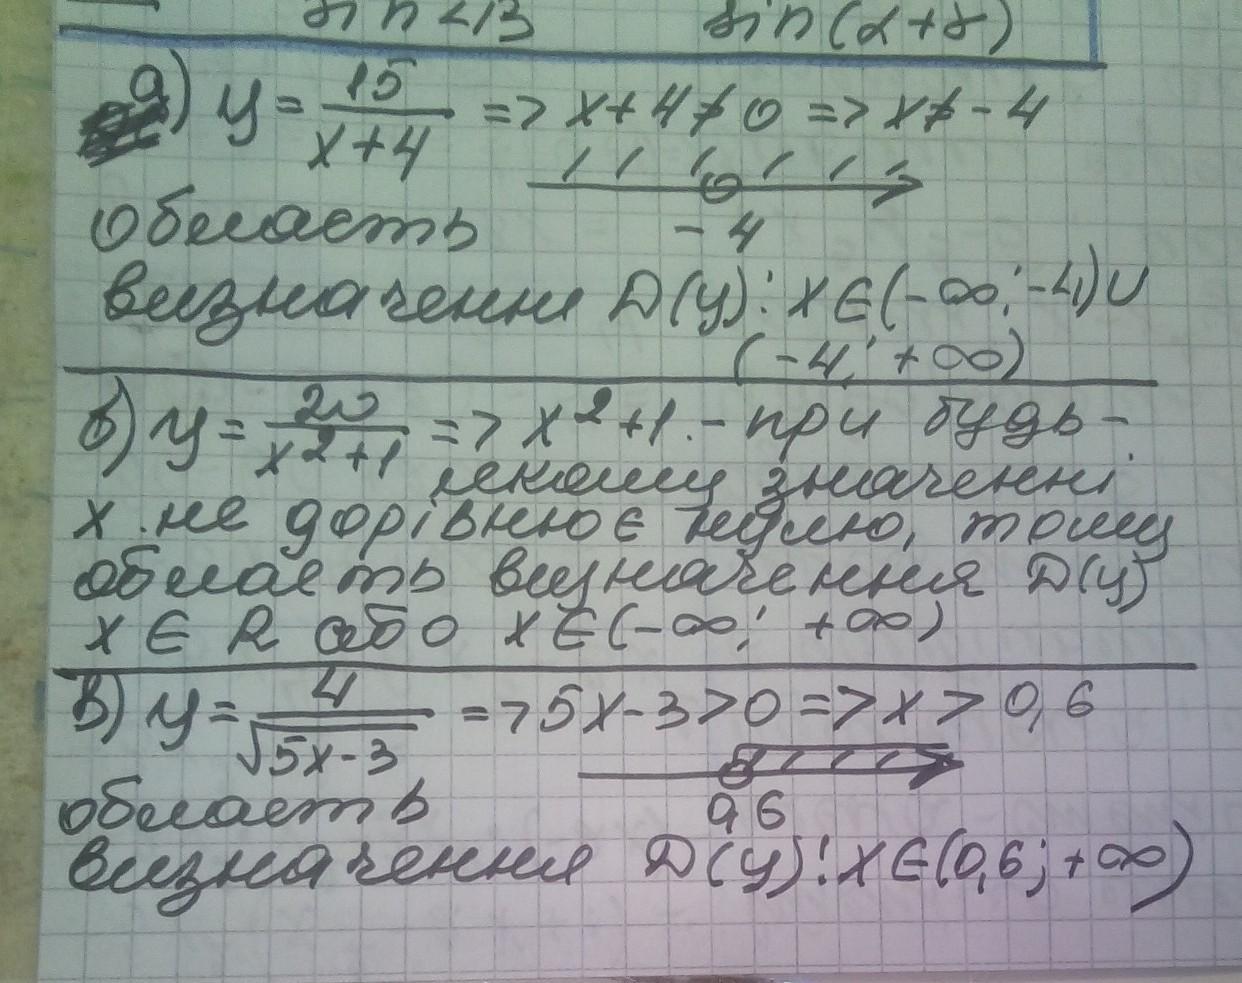 sin<B sin(α+γ)
а) y = 15/(x+4) => x+4≠0 => x≠-4
-4
область
визначенн D(y): x∈(-∞; -4)∪
(-4; +∞)
б) y = 20/(x²+1) => x²+1 - при будь-
якому значенні
x не дорівнює нулю, тому
область визначення D(y)
x ∈ R або x∈(-∞; +∞)
в) y = 4/√(5x-3) => 5x-3>0 => x > 0,6
0,6
область
визначення D(y): x∈(0,6; +∞)